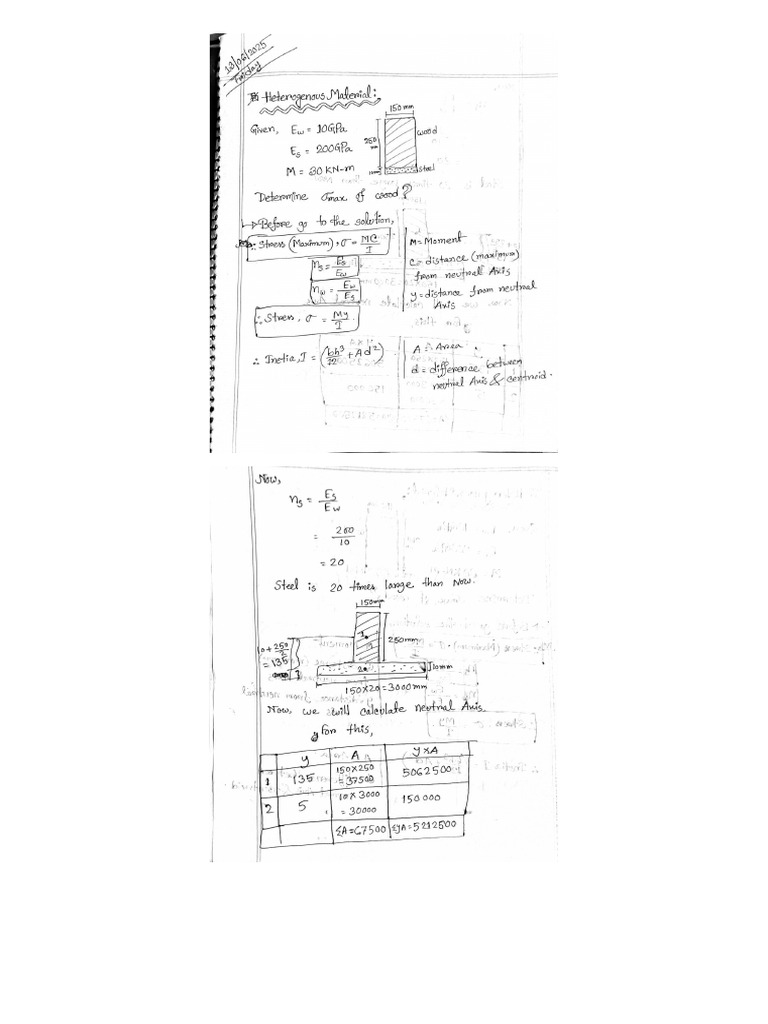 13/06/2025
Friday
Heterogenous Material:
Given, Ew = 10GPa
Es = 200GPa
M = 30 KN-m
150 mm
250 mm
wood
steel
Determine σmax of wood?
Before go to the solution,
∴ Stress (Maximum), σ = MC/I
ns = Es/Ew
nw = Ew/Es
∴ Stress, σ = My/I
M = Moment
C = distance (maximum)
from neutral Axis
y = distance from neutral
Axis
∴ Inetia, I = (bh³/12 + Ad²)
A = Area
d = difference between
neutral Axis & centroid.
Now,
ns = Es/Ew
= 200/10
= 20
Steel is 20 times large than Now.
150mm
10 + 250/2
= 135
1
250mm
2
10mm
150X20 = 3000mm
Now, we will calculate neutral Axis.
For this,
y A y×A
1 135 150×250 = 37500 5062500
2 5 10×3000 = 30000 150000
ΣA = 67500 ΣyA = 5212500